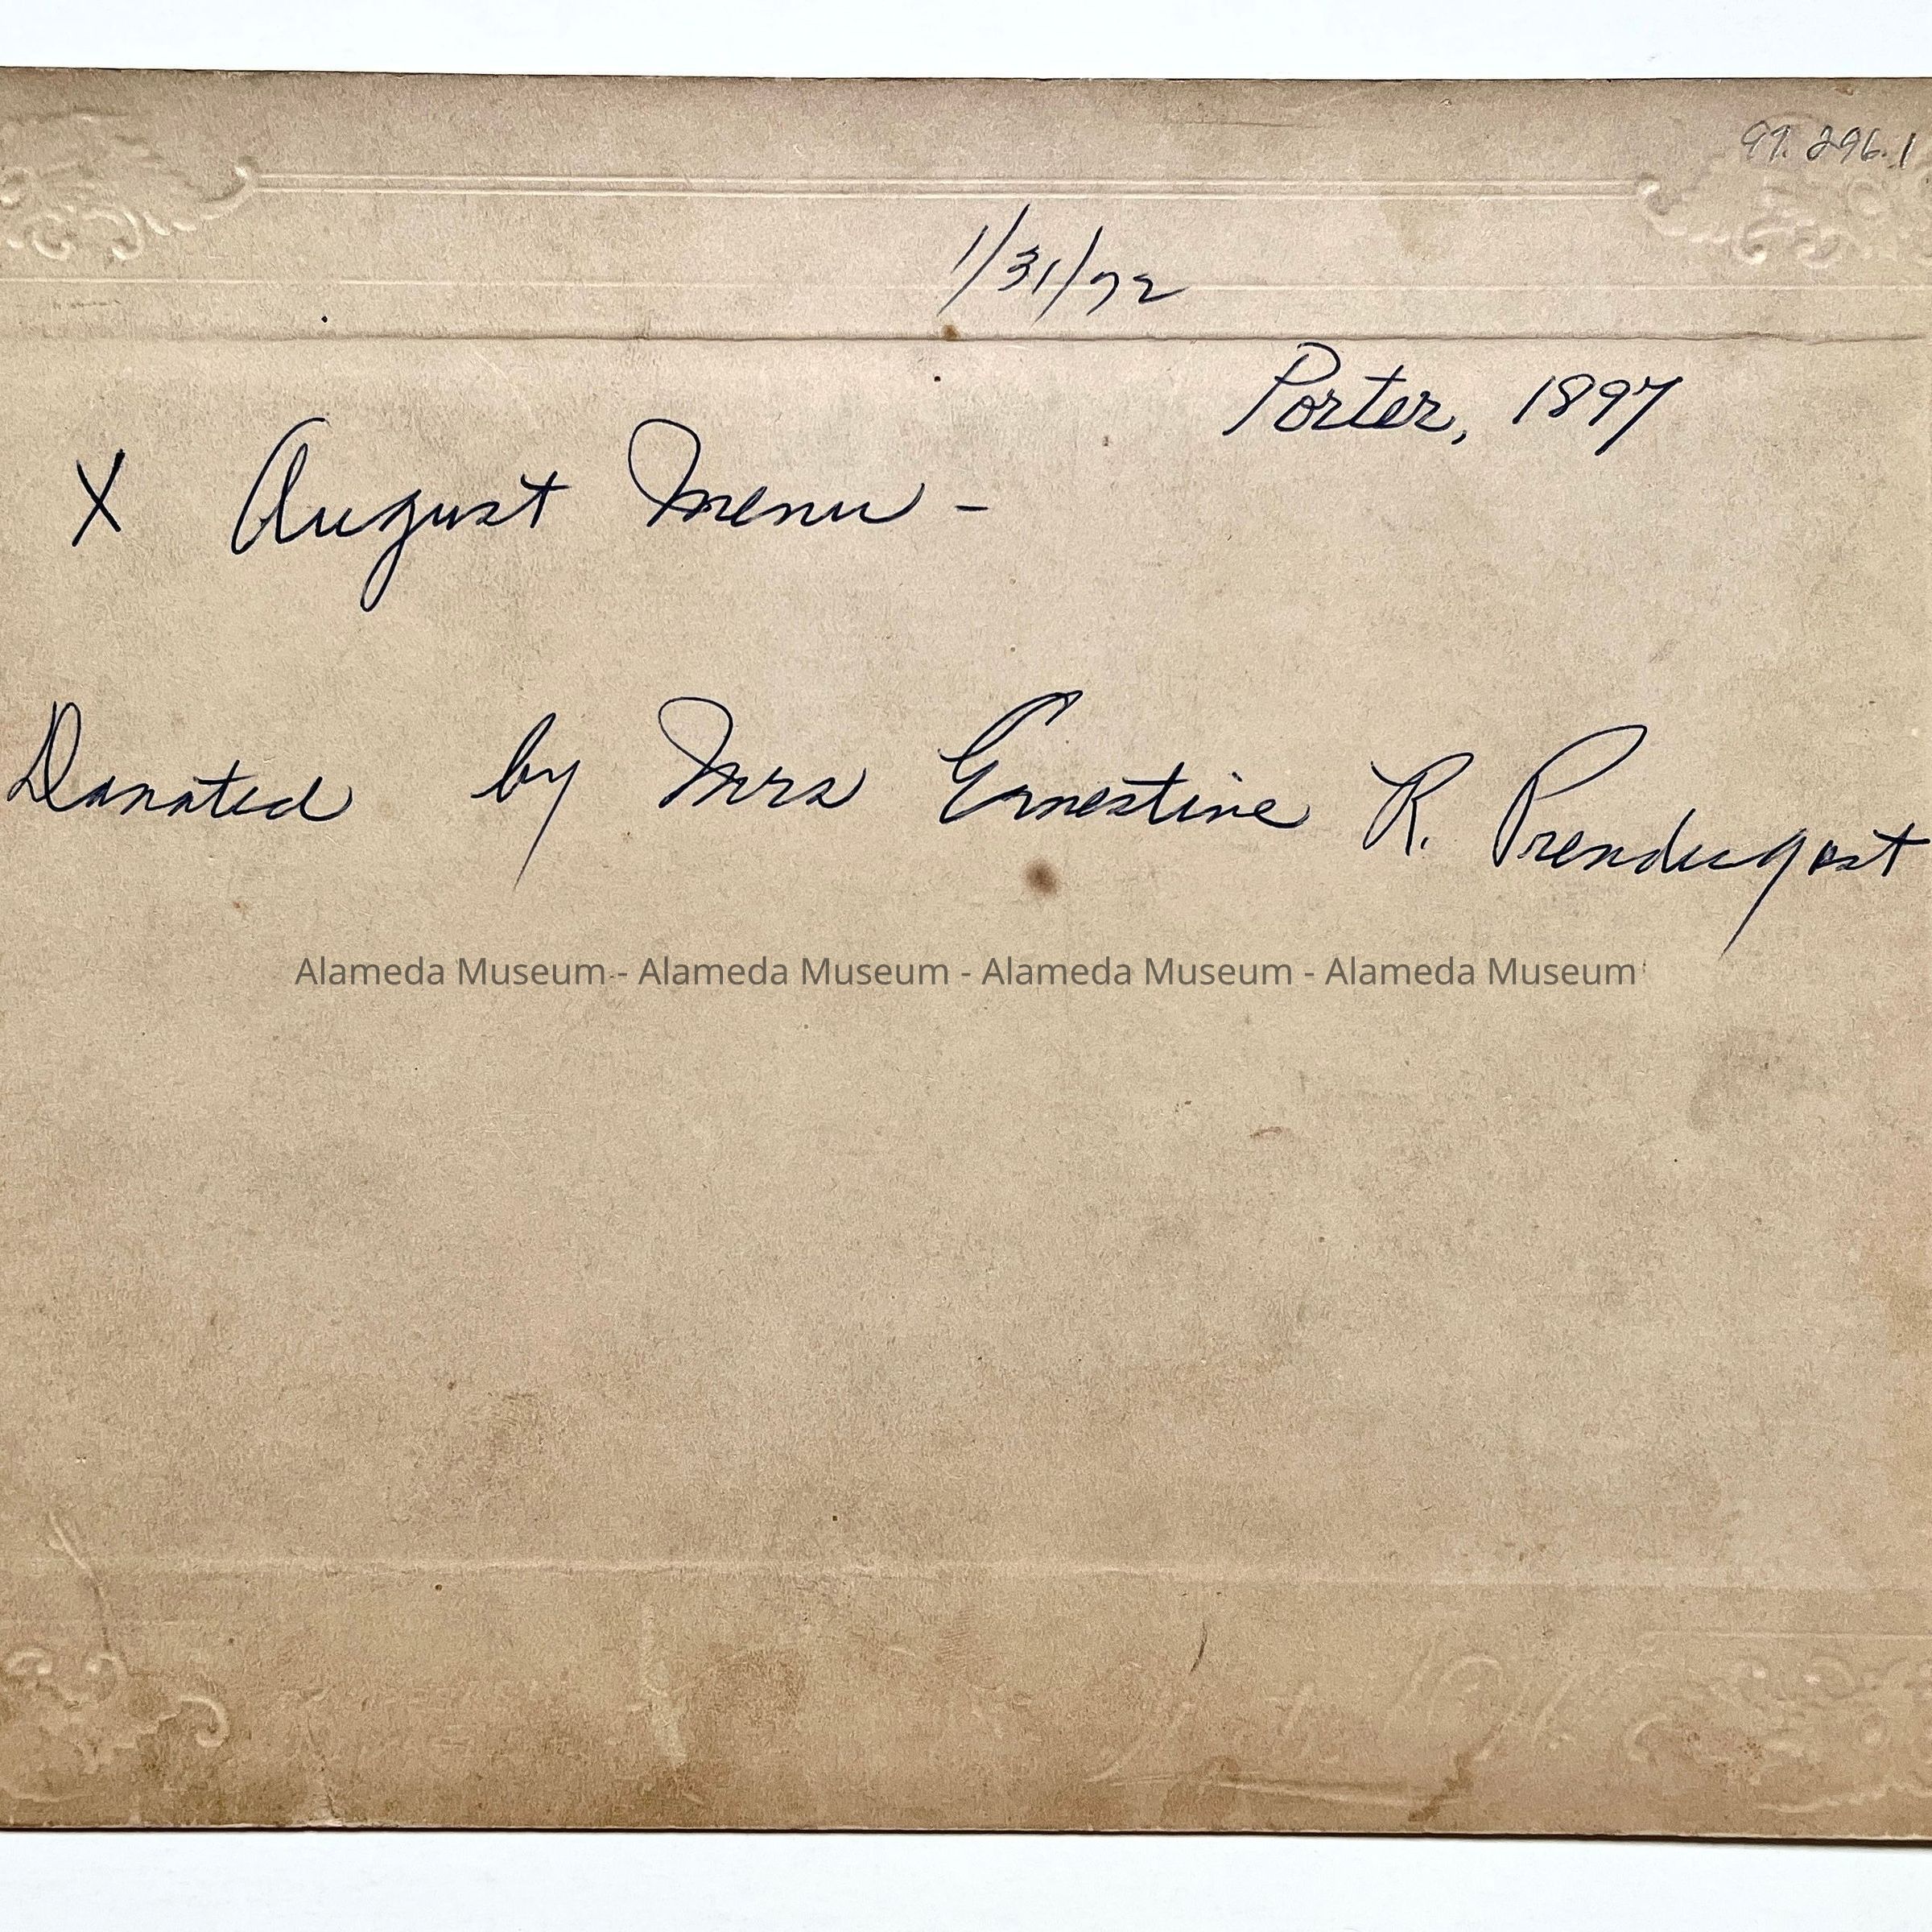 99.296.1
1/31/72
Porter, 1897
X August Menu -
Donated by Mrs Ernestine R. Prendergast
Alameda Museum - Alameda Museum - Alameda Museum - Alameda Museum